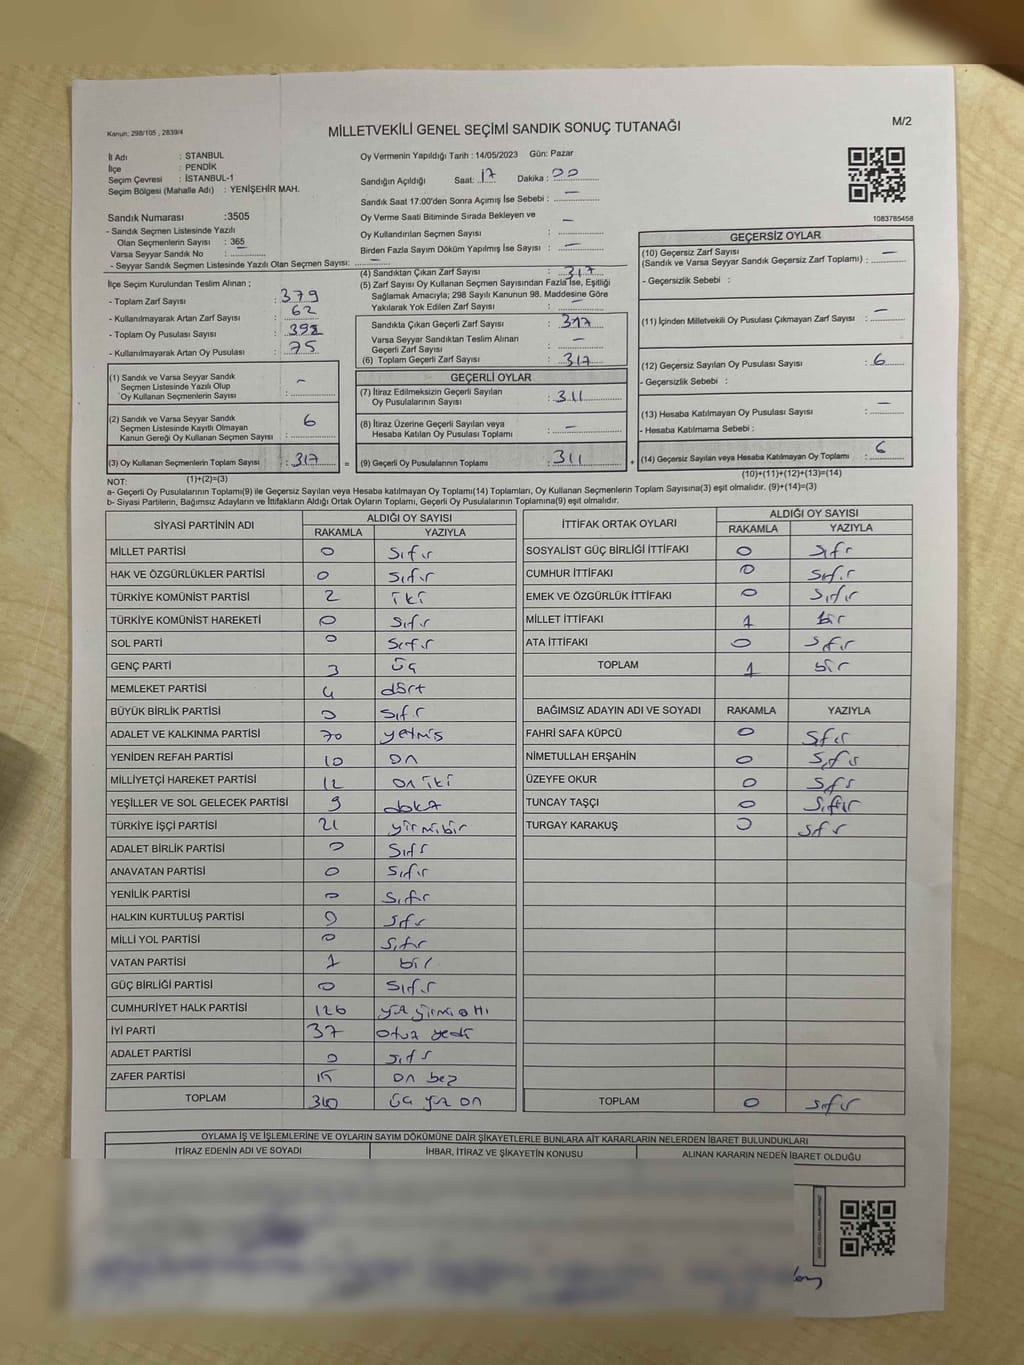 Kanun; 298/105 , 2839/4
MİLLETVEKİLİ GENEL SEÇİMİ SANDIK SONUÇ TUTANAĞI
M/2
İl Adı : STANBUL
İlçe : PENDİK
Seçim Çevresi : İSTANBUL-1
Seçim Bölgesi (Mahalle Adı) : YENİŞEHİR MAH.
Oy Vermenin Yapıldığı Tarih : 14/05/2023 Gün: Pazar
Sandığın Açıldığı Saat: 17 Dakika : 00
Sandık Saat 17:00'den Sonra Açımış İse Sebebi : –
Oy Verme Saati Bitiminde Sırada Bekleyen ve
Oy Kullandırılan Seçmen Sayısı : –
Birden Fazla Sayım Döküm Yapılmış İse Sayısı : –
1083785458
Sandık Numarası :3505
- Sandık Seçmen Listesinde Yazılı
Olan Seçmenlerin Sayısı : 365
Varsa Seyyar Sandık No :
- Seyyar Sandık Seçmen Listesinde Yazılı Olan Seçmen Sayısı: –
İlçe Seçim Kurulundan Teslim Alınan ;
- Toplam Zarf Sayısı : 379
- Kullanılmayarak Artan Zarf Sayısı : 62
- Toplam Oy Pusulası Sayısı : 392
- Kullanılmayarak Artan Oy Pusulası : 75
(1) Sandık ve Varsa Seyyar Sandık
Seçmen Listesinde Yazılı Olup
Oy Kullanan Seçmenlerin Sayısı : –
(2) Sandık ve Varsa Seyyar Sandık
Seçmen Listesinde Kayıtlı Olmayan
Kanun Gereği Oy Kullanan Seçmen Sayısı : 6
(3) Oy Kullanan Seçmenlerin Toplam Sayısı : 317
(1)+(2)=(3)
(4) Sandıktan Çıkan Zarf Sayısı : 317
(5) Zarf Sayısı Oy Kullanan Seçmen Sayısından Fazla İse, Eşitliği
Sağlamak Amacıyla; 298 Sayılı Kanunun 98. Maddesine Göre
Yakılarak Yok Edilen Zarf Sayısı : –
Sandıkta Çıkan Geçerli Zarf Sayısı : 317
Varsa Seyyar Sandıktan Teslim Alınan
Geçerli Zarf Sayısı : –
(6) Toplam Geçerli Zarf Sayısı : 317
GEÇERLİ OYLAR
(7) İtiraz Edilmeksizin Geçerli Sayılan
Oy Pusulalarının Sayısı : 311
(8) İtiraz Üzerine Geçerli Sayılan veya
Hesaba Katılan Oy Pusulası Toplamı : –
= (9) Geçerli Oy Pusulalarının Toplamı : 311 +
GEÇERSİZ OYLAR
(10) Geçersiz Zarf Sayısı
(Sandık ve Varsa Seyyar Sandık Geçersiz Zarf Toplamı) : –
- Geçersizlik Sebebi :
(11) İçinden Milletvekili Oy Pusulası Çıkmayan Zarf Sayısı : –
(12) Geçersiz Sayılan Oy Pusulası Sayısı : 6
- Geçersizlik Sebebi :
(13) Hesaba Katılmayan Oy Pusulası Sayısı : –
- Hesaba Katılmama Sebebi :
(14) Geçersiz Sayılan veya Hesaba Katılmayan Oy Toplamı : 6
(10)+(11)+(12)+(13)=(14)
NOT:
a- Geçerli Oy Pusulalarının Toplamı(9) ile Geçersiz Sayılan veya Hesaba katılmayan Oy Toplamı(14) Toplamları, Oy Kullanan Seçmenlerin Toplam Sayısına(3) eşit olmalıdır. (9)+(14)=(3)
b- Siyasi Partilerin, Bağımsız Adayların ve İttifakların Aldığı Ortak Oyların Toplamı, Geçerli Oy Pusulalarının Toplamına(9) eşit olmalıdır.
SİYASİ PARTİNİN ADI ALDIĞI OY SAYISI
RAKAMLA YAZIYLA
MİLLET PARTİSİ 0 Sıfır
HAK VE ÖZGÜRLÜKLER PARTİSİ 0 Sıfır
TÜRKİYE KOMÜNİST PARTİSİ 2 iki
TÜRKİYE KOMÜNİST HAREKETİ 0 Sıfır
SOL PARTİ 0 Sıfır
GENÇ PARTİ 3 üç
MEMLEKET PARTİSİ 4 dört
BÜYÜK BİRLİK PARTİSİ 0 Sıfır
ADALET VE KALKINMA PARTİSİ 70 yetmiş
YENİDEN REFAH PARTİSİ 10 on
MİLLİYETÇİ HAREKET PARTİSİ 12 on iki
YEŞİLLER VE SOL GELECEK PARTİSİ 9 dokuz
TÜRKİYE İŞÇİ PARTİSİ 21 yirmibir
ADALET BİRLİK PARTİSİ 0 Sıfır
ANAVATAN PARTİSİ 0 Sıfır
YENİLİK PARTİSİ 0 Sıfır
HALKIN KURTULUŞ PARTİSİ 0 Sıfır
MİLLİ YOL PARTİSİ 0 Sıfır
VATAN PARTİSİ 1 bir
GÜÇ BİRLİĞİ PARTİSİ 0 Sıfır
CUMHURİYET HALK PARTİSİ 126 yüz yirmi altı
İYİ PARTİ 37 otuz yedi
ADALET PARTİSİ 0 sıfır
ZAFER PARTİSİ 15 on beş
TOPLAM 310 üç yüz on
İTTİFAK ORTAK OYLARI ALDIĞI OY SAYISI
RAKAMLA YAZIYLA
SOSYALİST GÜÇ BİRLİĞİ İTTİFAKI 0 Sıfır
CUMHUR İTTİFAKI 0 Sıfır
EMEK VE ÖZGÜRLÜK İTTİFAKI 0 Sıfır
MİLLET İTTİFAKI 1 bir
ATA İTTİFAKI 0 Sıfır
TOPLAM 1 bir
BAĞIMSIZ ADAYIN ADI VE SOYADI RAKAMLA YAZIYLA
FAHRİ SAFA KÜPCÜ 0 Sıfır
NİMETULLAH ERŞAHİN 0 Sıfır
ÜZEYFE OKUR 0 Sıfır
TUNCAY TAŞÇI 0 Sıfır
TURGAY KARAKUŞ 0 Sıfır
TOPLAM 0 sıfır
OYLAMA İŞ VE İŞLEMLERİNE VE OYLARIN SAYIM DÖKÜMÜNE DAİR ŞİKAYETLERLE BUNLARA AİT KARARLARIN NELERDEN İBARET BULUNDUKLARI
İTİRAZ EDENİN ADI VE SOYADI İHBAR, İTİRAZ VE ŞİKAYETİN KONUSU ALINAN KARARIN NEDEN İBARET OLDUĞU